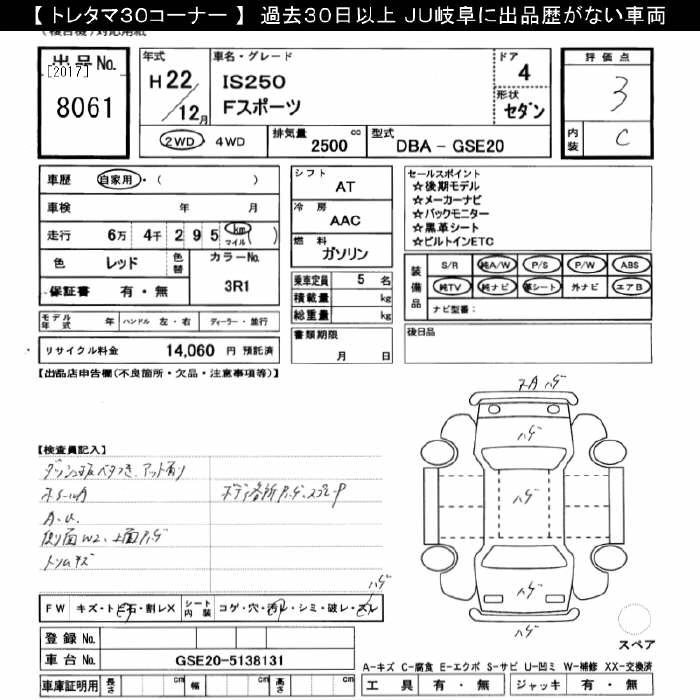 【トレタマ30コーナー】 過去30日以上 JU岐阜に出品歴がない車両
出品No.
[2017]
8061
年式
H22/12月
車名・グレード
IS250
Fスポーツ
ドア
4
形状
セダン
評価点
3
内装
C
2WD / 4WD
排気量 2500 cc
型式 DBA-GSE20
車歴 自家用・( )
車検 年 月
走行 6万 4千 2 9 5 km マイル ( )
色 レッド 色替
カラーNo. 3R1
保証書 有・無
モデル年式 年 ハンドル 左・右 ディーラー・並行
リサイクル料金 14,060 円 預託済
シフト
AT
冷房
AAC
燃料
ガソリン
乗車定員 5 名
積載量 kg
総重量 kg
書類期限
月 日
セールスポイント
☆後期モデル
☆メーカーナビ
☆バックモニター
☆黒革シート
☆ビルトインETC
装備品
S/R 純A/W P/S P/W ABS
純TV 純ナビ 革シート 外ナビ エアB
ナビ型番:
後日品
【出品店申告欄(不良箇所・欠品・注意事項等)】
【検査員記入】
A ハゲ
ハゲ
ハゲ
ハゲ
ハゲ
ハゲ
FW キズ・トビ石・割レX シート内装 コゲ・穴・汚レ・シミ・破レ・スレ
登録No.
車台No. GSE20-5138131
車庫証明用 長さ cm 幅 cm 高さ cm
スペア
A-キズ C-腐食 E-エクボ S-サビ U-凹ミ W-補修 XX-交換済
工具 有・無 ジャッキ 有・無